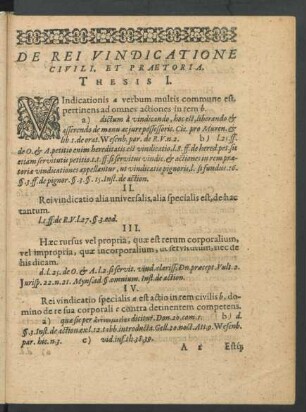 DE REI VINDICATIONE
CIVILI, ET PRAETORIA.
THESIS I.
VIndicationis a verbum multis commune est,
pertinens ad omnes actiones in rem b.
a) dictum à vindicando, hac est, liberando &
asserendo de manu ac jure possessoris. Cic. pro Muren. &
lib 1. de orat. Wesenb. par. de R.V. n.2. b) l.25. ff.
de O. & A. petitio enim hereditatis est vindicatio, l.3. ff. de hered. pet. sic
etiam servitutis petitio. l.2. ff si servitus vindic. & actiones in rem præ-
toriæ vindicationes appellantur, ut vindicatio pignoris, l. si fundus. 16.
§.3. ff. de pignor. §.1. §. 15. Inst. de action.
II.
Rei vindicatio alia universalis, alia specialis est, de hac
tantum.
l.1. ff de R.V. l.27. §.3. eod.
III.
Hæc rursus vel propria, quæ est rerum corporalium,
vel impropria, quæ incorporalium, in servitutib. nec de
his dicam.
d.l.25. de O. & A. l.2. si servit. vind. clariss. Dn. præcept. Vult. 2.
Juriss. 22. n.21. Mynsad. §. omnium. Inst. de action.
IV.
Rei vindicatio specialis a est actio in rem civilis b, do-
mino de re sua corporali c contra detinentem competens.
a) quæ sie per dictur. Don. 20. com. 1. b) d.
§.3. Inst. de action. l.12. introducta. Gell. 20. noct. Att. 9. Wesenb.
par. hoc n.3. c) vid. inf. th. 38. 39.
A 2 Estq;